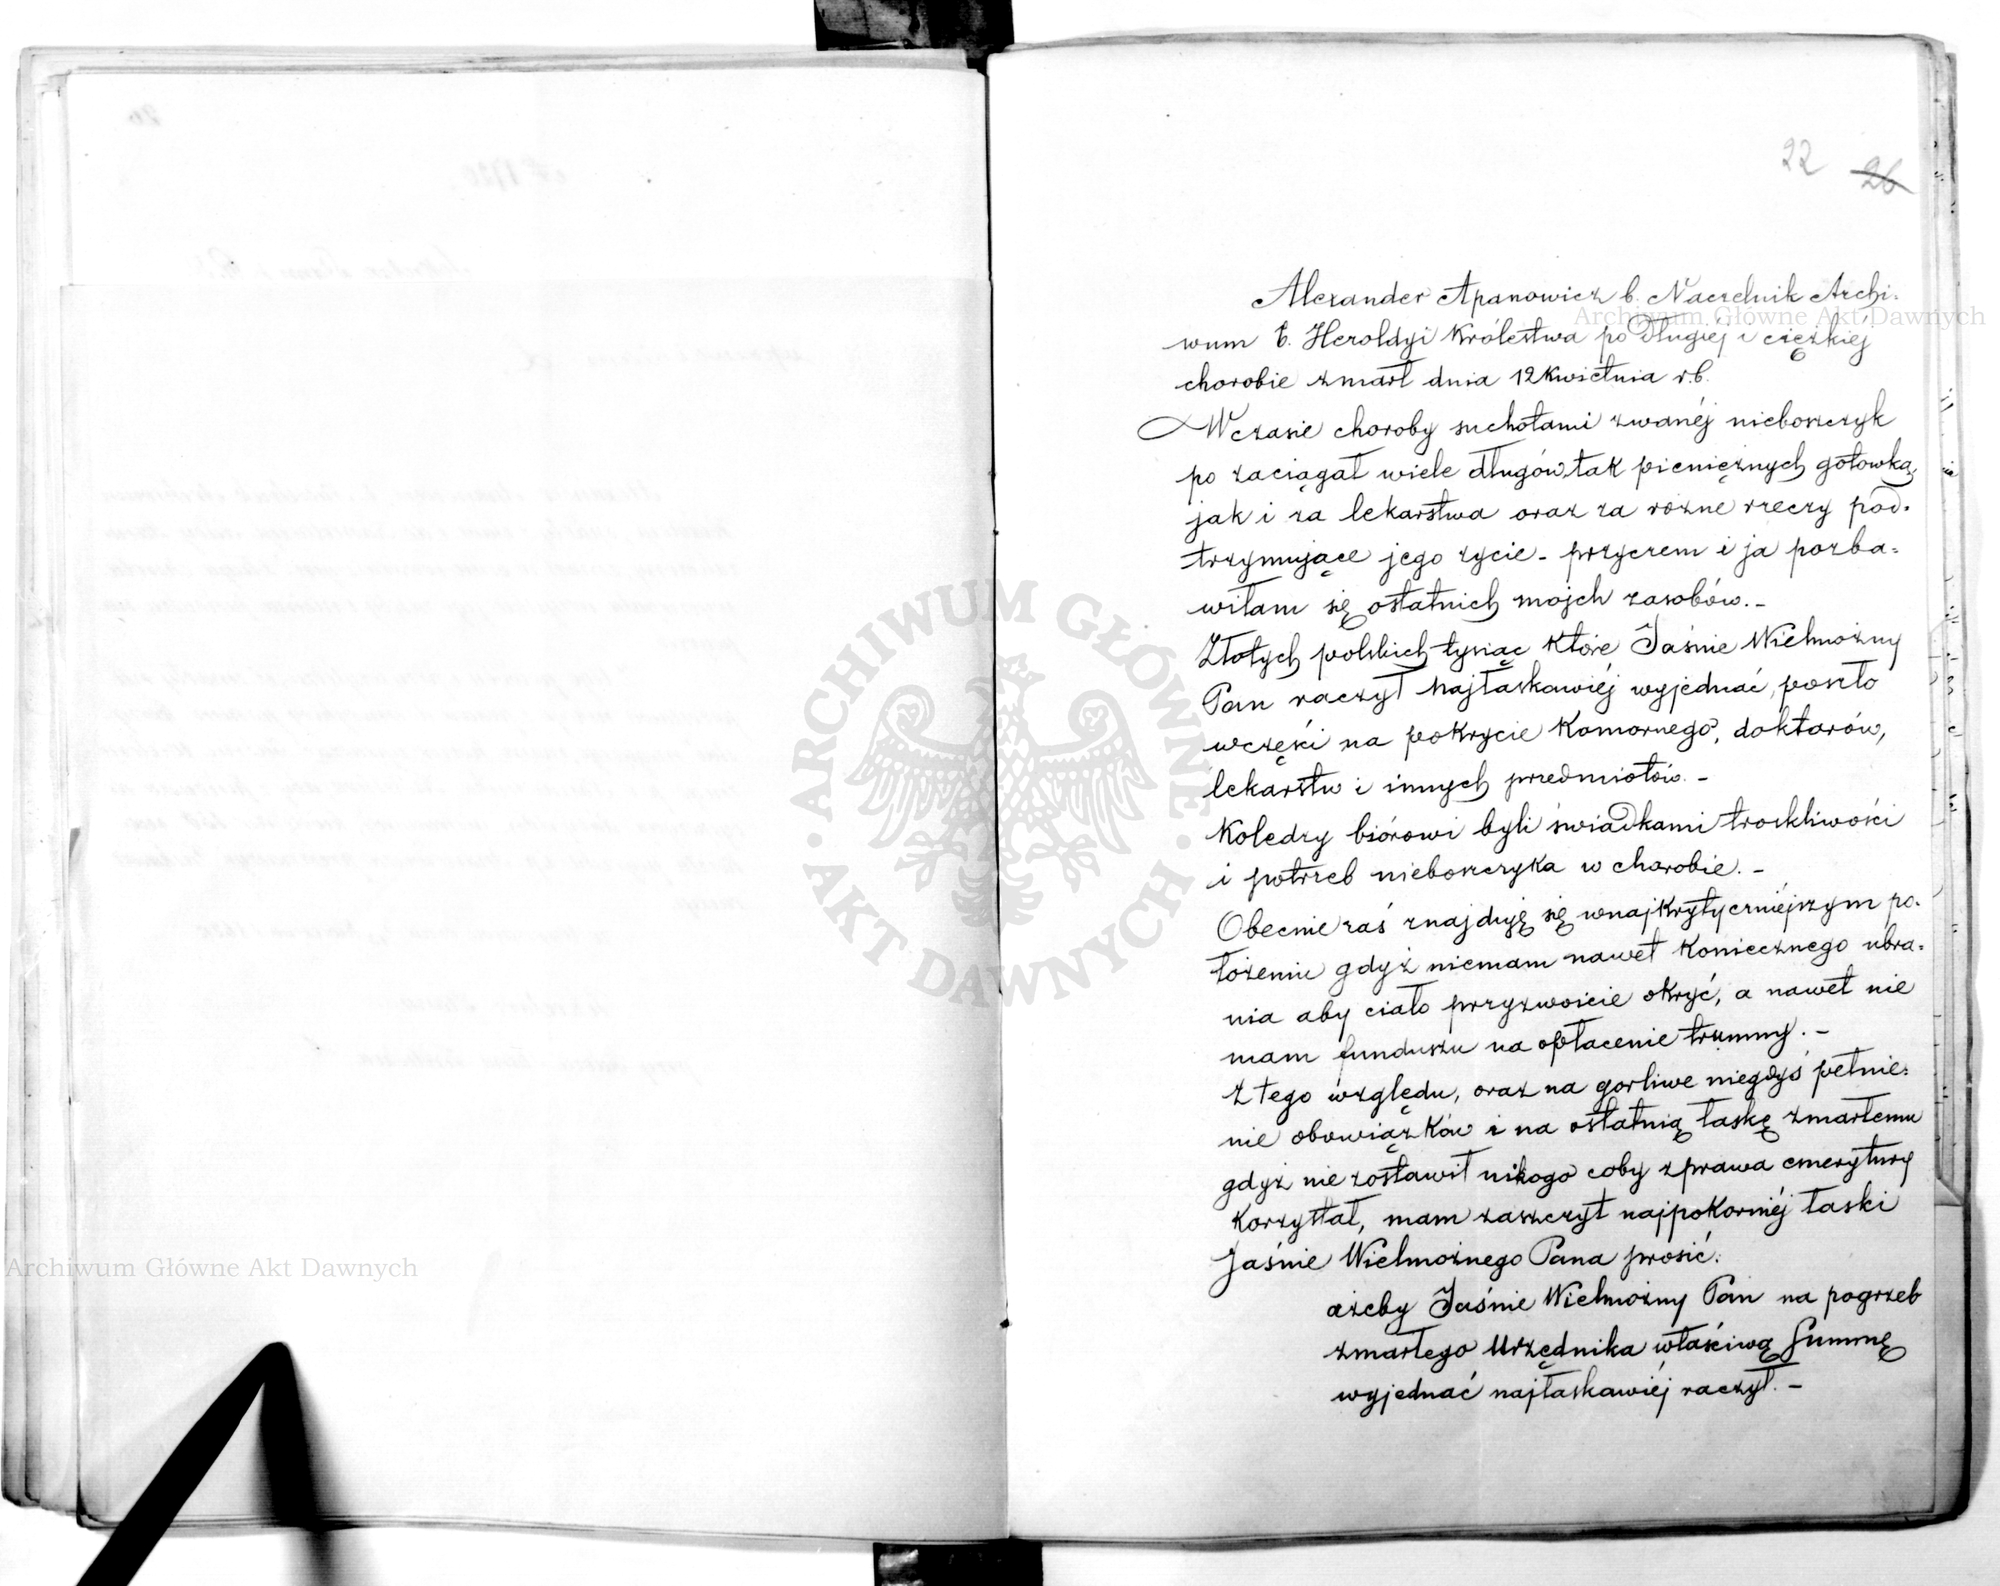 22 26
Alexander Apanowicz b. Naczelnik Archi-
wum b. Heroldyi Królestwa po Długiéj i ciężkiéj
chorobie zmarł dnia 12 Kwietnia r.b.
W czasie choroby suchotami zwanéj nieboszczyk
po zaciągał wiele długów, tak pieniężnych gotowką,
jak i za lekarstwa oraz za rożne rzeczy pod-
trzymujące jego zycie - przyczem i ja pozba-
wiłam się ostatnich mojch zasobów. -
Złotych polskich tysiąc które Jaśnie Wielmożny
Pan raczył najłaskawiéj wyjednać, poszło
wczęści na pokrycie Komornego, doktorów,
lekarstw i innych przedmiotów. -
Koledzy biórowi byli świadkami troskliwości
i potrzeb nieboszczyka w chorobie. -
Obecnie zaś znajduję się wnajkrytyczniéjszym po-
łożeniu gdyż niemam nawet Koniecznego ubra-
nia aby ciało przyzwoicie okryć, a nawet nie
mam funduszu na opłacenie trumny. -
Z tego względu, oraz na gorliwe niegdyś pełnie-
nie obowiązków i na ostatnią łaskę zmarłemu
gdyż nie zostawił nikogo coby z prawa emerytury
Korzystał, mam zaszczyt najpokorniéj łaski
Jaśnie Wielmożnego Pana prosić:
ażeby Jaśnie Wielmożny Pan na pogrzeb
zmarłego Urzędnika właściwą Summę
wyjednać najłaskawiéj raczył. -
Archiwum Główne Akt Dawnych
Archiwum Główne Akt Dawnych
ARCHIWUM GŁÓWNE · AKT DAWNYCH ·